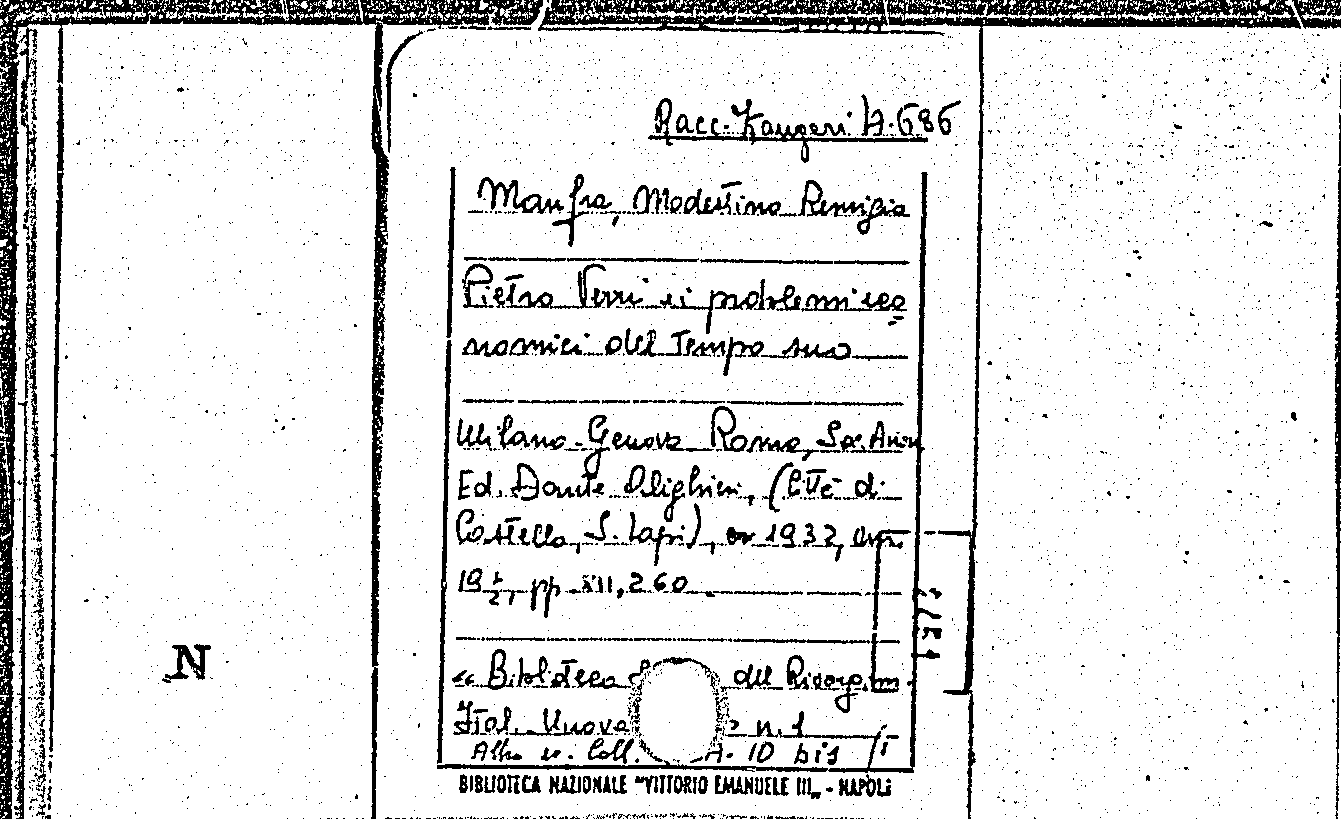 Racc. Zangari A. 686
Manfra, Modestino Remigio
Pietro Verri e i problemi eco
nomici del tempo suo
Milano-Genova Roma, Soc. Anon
Ed. Dante Alighieri, (Città di
Castello, S. Lapi), 1932,
19 1/2, pp. XII, 260.
« Biblioteca del Risorgim.
Ital. Nuova » n. 1
Altro es. Coll. A. 10 bis
N
BIBLIOTECA NAZIONALE "VITTORIO EMANUELE III„ - NAPOLI